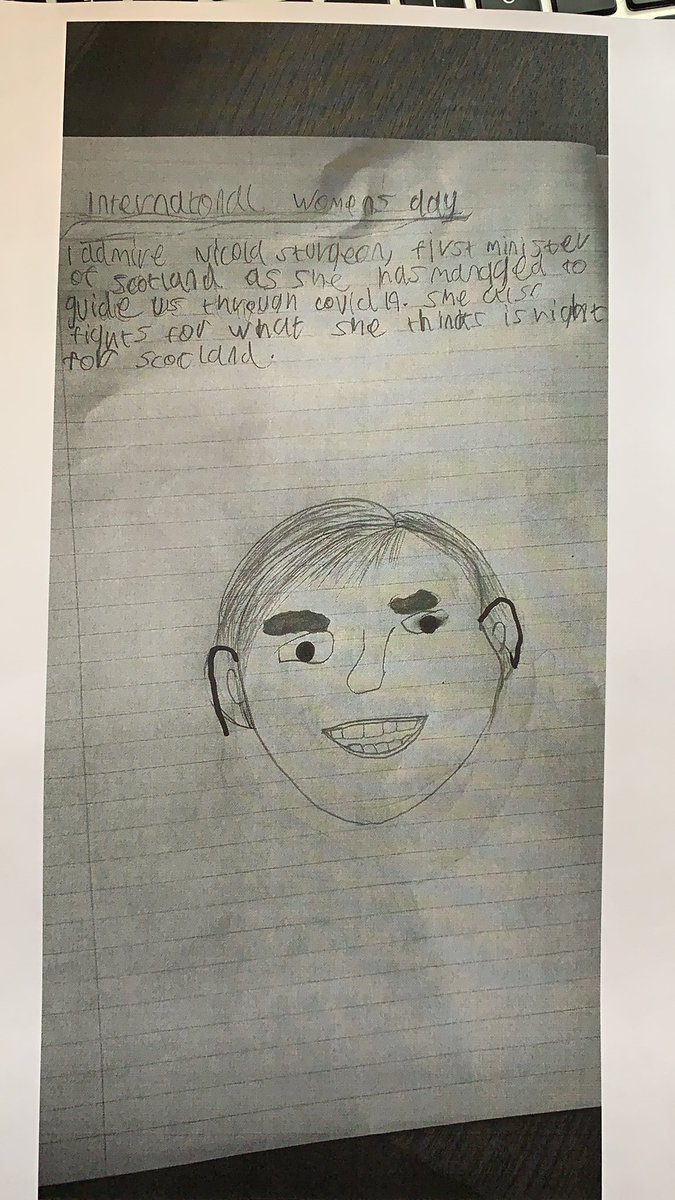 International womens day
I admire Nicola sturgeon, first minister
of scotland as she has managed to
guide us through covid 19. she also
fights for what she thinks is right
for scotland.